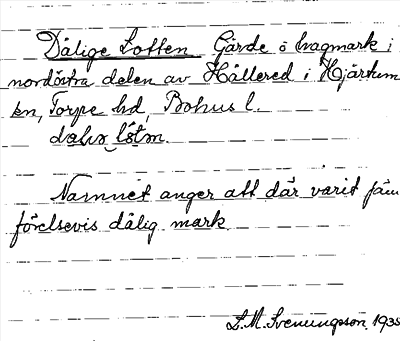 Dålige Lotten Gärde o hagmark i
nordöstra delen av Hållered i Hjärtum
kn, Torpe hd, Bohus l.
Namnet anger att där varit jäm
förelsevis dålig mark.
L.M. Svenungsson. 1935